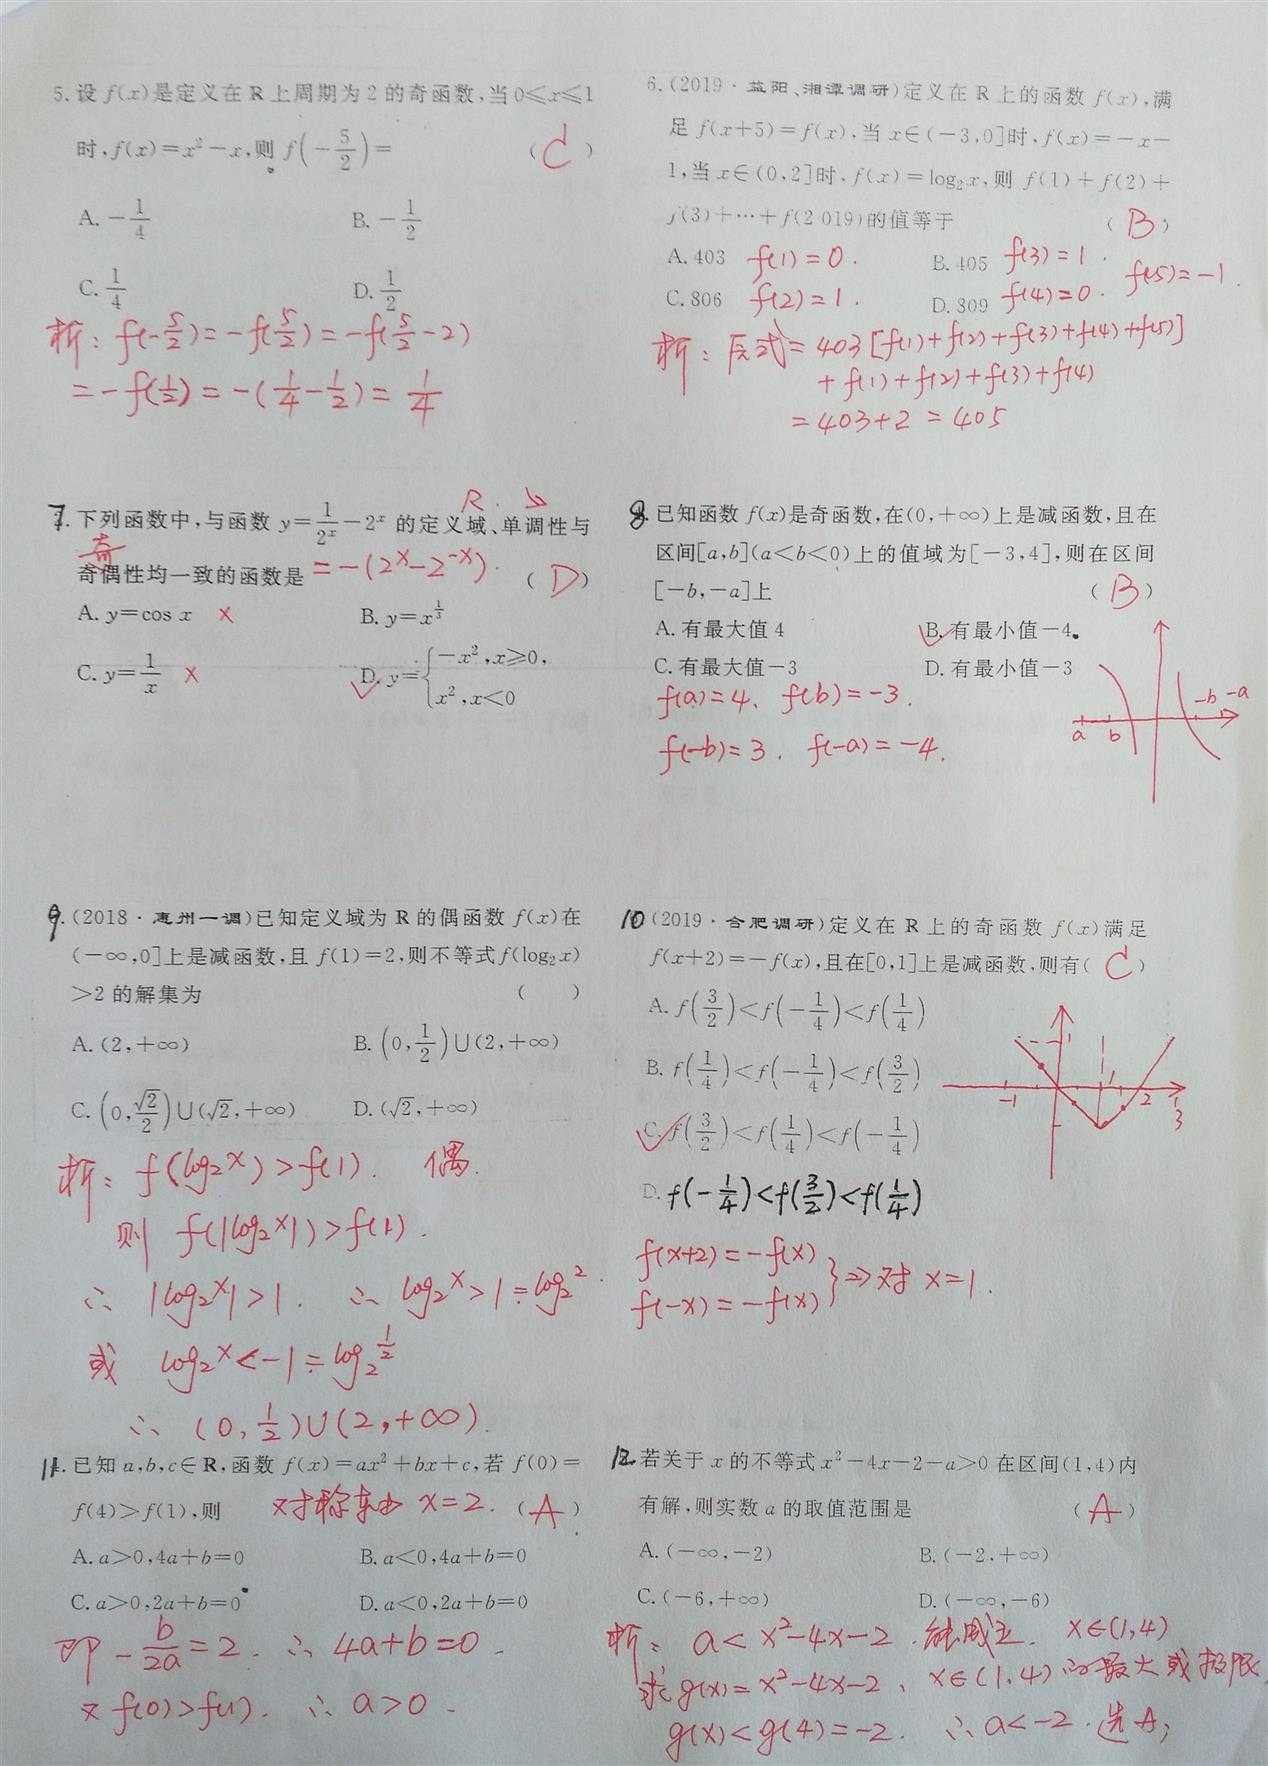 5. 设 f(x)是定义在 R 上周期为 2 的奇函数,当 0≤x≤1
时,f(x)=x²-x,则 f(-5/2)= ( C )
A. -1/4 B. -1/2
C. 1/4 D. 1/2
析: f(-5/2)=-f(5/2)=-f(5/2-2)
=-f(1/2)=-(1/4-1/2)=1/4
6. (2019·益阳、湘潭调研)定义在 R 上的函数 f(x),满
足 f(x+5)=f(x),当 x∈(-3,0]时,f(x)=-x-
1,当 x∈(0,2]时,f(x)=log₂x,则 f(1)+f(2)+
f(3)+…+f(2 019)的值等于 ( B )
A. 403 f(1)=0. B. 405 f(3)=1. f(5)=-1.
C. 806 f(2)=1. D. 809 f(4)=0.
析: 原式=403[f(1)+f(2)+f(3)+f(4)+f(5)]
+f(1)+f(2)+f(3)+f(4)
=403+2=405
R. ↘
7. 下列函数中,与函数 y=1/2ˣ-2ˣ 的定义域、单调性与
奇
奇偶性均一致的函数是 =-(2ˣ-2⁻ˣ). ( D )
A. y=cos x × B. y=x^(1/3)
C. y=1/x × D. y={-x²,x≥0,
x²,x<0
8. 已知函数 f(x)是奇函数,在(0,+∞)上是减函数,且在
区间[a,b](a<b<0)上的值域为[-3,4],则在区间
[-b,-a]上 ( B )
A. 有最大值 4 B. 有最小值-4
C. 有最大值-3 D. 有最小值-3
f(a)=4、f(b)=-3.
f(-b)=3. f(-a)=-4.
a b -b -a
9. (2018·惠州一调)已知定义域为 R 的偶函数 f(x)在
(-∞,0]上是减函数,且 f(1)=2,则不等式 f(log₂x)
>2 的解集为 ( )
A. (2,+∞) B. (0,1/2)∪(2,+∞)
C. (0,√2/2)∪(√2,+∞) D. (√2,+∞)
析: f(log₂x)>f(1). 偶.
则 f(|log₂x|)>f(1).
∴ |log₂x|>1. ∴ log₂x>1=log₂2.
或 log₂x<-1=log₂1/2
∴ (0,1/2)∪(2,+∞).
10 (2019·合肥调研)定义在 R 上的奇函数 f(x)满足
f(x+2)=-f(x),且在[0,1]上是减函数,则有( C )
A. f(3/2)<f(-1/4)<f(1/4)
B. f(1/4)<f(-1/4)<f(3/2)
C. f(3/2)<f(1/4)<f(-1/4)
D. f(-1/4)<f(3/2)<f(1/4)
-1 1 2 3
f(x+2)=-f(x)
f(-x)=-f(x) }⇒对 x=1.
11. 已知 a,b,c∈R,函数 f(x)=ax²+bx+c,若 f(0)=
f(4)>f(1),则 对称轴 x=2. ( A )
A. a>0,4a+b=0 B. a<0,4a+b=0
C. a>0,2a+b=0 D. a<0,2a+b=0
即 -b/2a=2. ∴ 4a+b=0.
又 f(0)>f(1). ∴ a>0.
12. 若关于 x 的不等式 x²-4x-2-a>0 在区间(1,4)内
有解,则实数 a 的取值范围是 ( A )
A. (-∞,-2) B. (-2,+∞)
C. (-6,+∞) D. (-∞,-6)
析: a<x²-4x-2. 能成立. x∈(1,4)
求 g(x)=x²-4x-2、x∈(1,4)的最大或极限.
g(x)<g(4)=-2. ∴ a<-2. 选A;